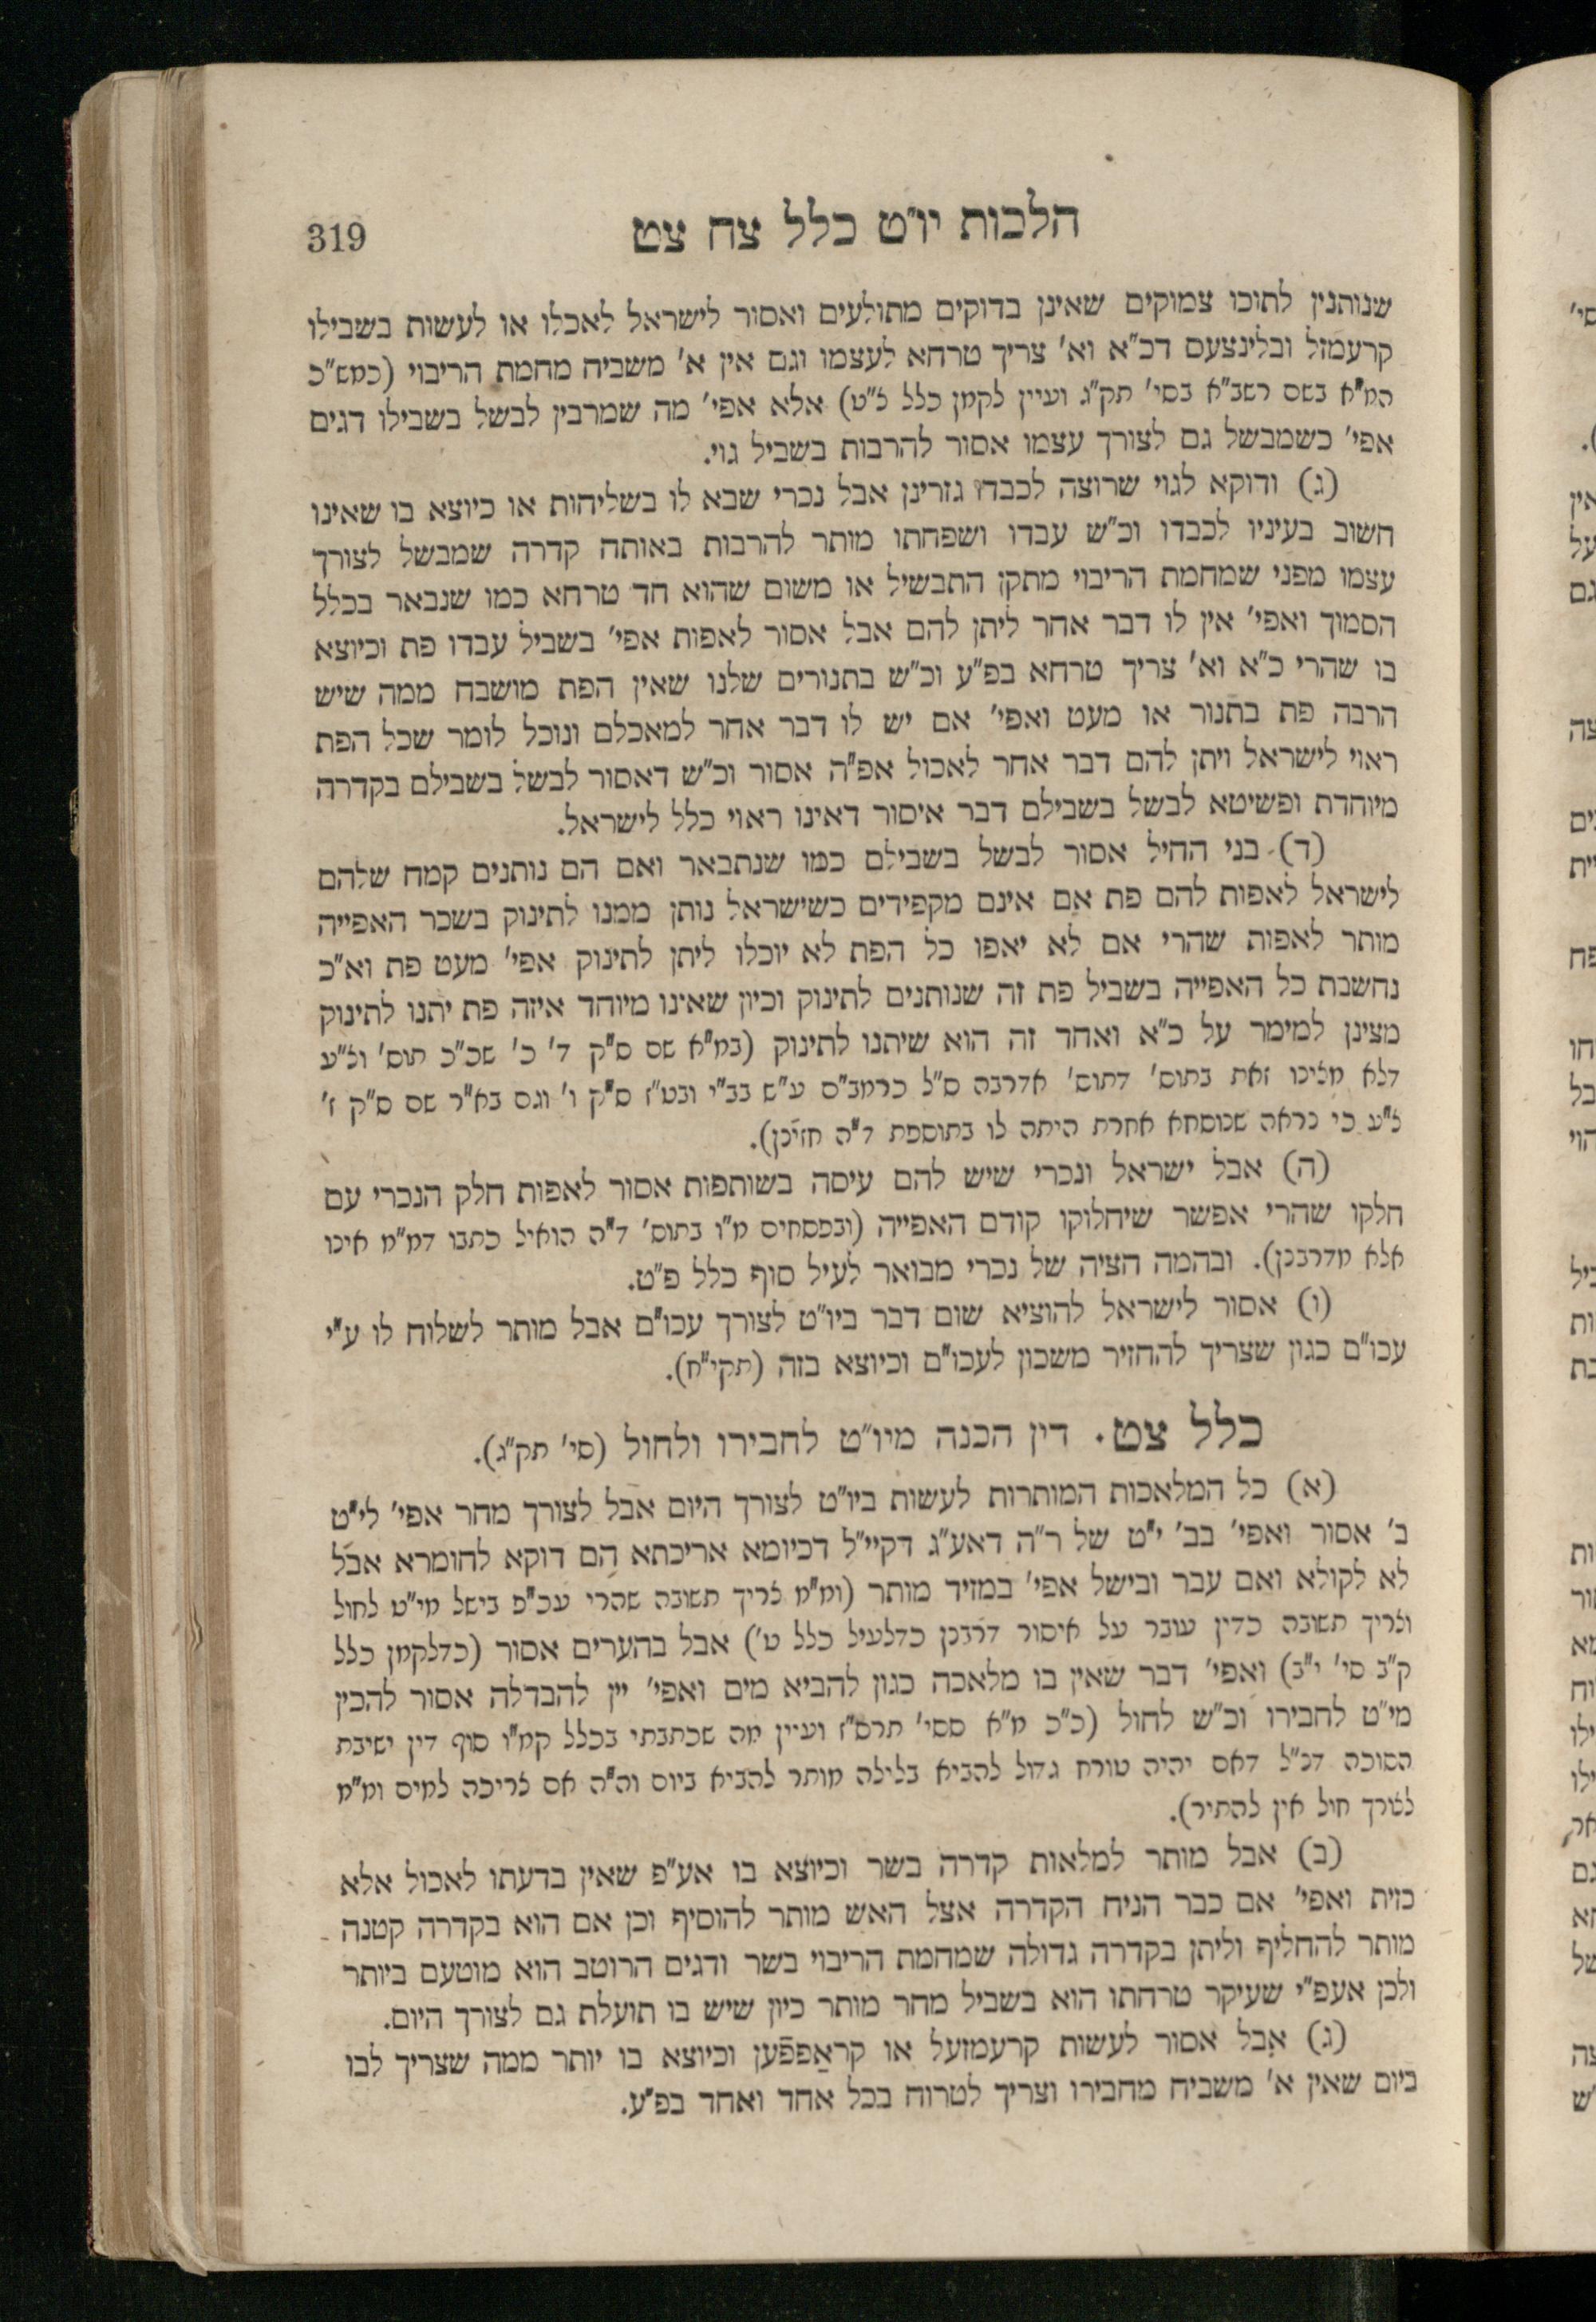 הלכות יו"ט כלל צח צט
319
שנותנין לתוכו צמוקים שאינן בדוקים מתולעים ואסור לישראל לאכלו או לעשות בשבילו
קרעמזל ובלינצעס דכ"א וא' צריך טרחא לעצמו וגם אין א' משביח מחמת הריבוי (כמש"כ
המ"א בשם רשב"א בסי' תק"ג ועיין לקמן כלל צ"ט) אלא אפי' מה שמרבין לבשל בשבילו דגים
אפי' כשמבשל גם לצורך עצמו אסור להרבות בשביל גוי.
(ג) ודוקא לגוי שרוצה לכבדו גזרינן אבל נכרי שבא לו בשליחות או כיוצא בו שאינו
חשוב בעיניו לכבדו וכ"ש עבדו ושפחתו מותר להרבות באותה קדרה שמבשל לצורך
עצמו מפני שמחמת הריבוי מתקן התבשיל או משום שהוא חד טרחא כמו שנבאר בכלל
הסמוך ואפי' אין לו דבר אחר ליתן להם אבל אסור לאפות אפי' בשביל עבדו פת וכיוצא
בו שהרי כ"א וא' צריך טרחא בפ"ע וכ"ש בתנורים שלנו שאין הפת מושבח ממה שיש
הרבה פת בתנור או מעט ואפי' אם יש לו דבר אחר למאכלם ונוכל לומר שכל הפת
ראוי לישראל ויתן להם דבר אחר לאכול אפ"ה אסור וכ"ש דאסור לבשל בשבילם בקדרה
מיוחדת ופשיטא לבשל בשבילם דבר איסור דאינו ראוי כלל לישראל.
(ד) בני החיל אסור לבשל בשבילם כמו שנתבאר ואם הם נותנים קמח שלהם
לישראל לאפות להם פת אם אינם מקפידים כשישראל נותן ממנו לתינוק בשכר האפייה
מותר לאפות שהרי אם לא יאפו כל הפת לא יוכלו ליתן לתינוק אפי' מעט פת וא"כ
נחשבת כל האפייה בשביל פת זה שנותנים לתינוק וכיון שאינו מיוחד איזה פת יתנו לתינוק
מצינן למימר על כ"א ואחד זה הוא שיתנו לתינוק (במ"א שם ס"ק ד' כ' שכ"כ תוס' וצ"ע
דלא מצינו זאת בתוס' דתוס' אדרבה ס"ל כרמב"ם ע"ש בב"י ובט"ז ס"ק ו' וגם בא"ר שם ס"ק ז'
צ"ע כי נראה שנוסחא אחרת היתה לו בתוספת ד"ה חזינן).
(ה) אבל ישראל ונכרי שיש להם עיסה בשותפות אסור לאפות חלק הנכרי עם
חלקו שהרי אפשר שיחלוקו קודם האפייה (ובפסחים מ"ו בתוס' ד"ה הואיל כתבו דמ"מ אינו
אלא מדרבנן). ובהמה חציה של נכרי מבואר לעיל סוף כלל פ"ט.
(ו) אסור לישראל להוציא שום דבר ביו"ט לצורך עכו"ם אבל מותר לשלוח לו ע"י
עכו"ם כגון שצריך להחזיר משכון לעכו"ם וכיוצא בזה (תקי"ח).
כלל צט. דין הכנה מיו"ט לחבירו ולחול (סי' תק"ג).
(א) כל המלאכות המותרות לעשות ביו"ט לצורך היום אבל לצורך מחר אפי' לי"ט
ב' אסור ואפי' בב' י"ט של ר"ה דאע"ג דקיי"ל דכיומא אריכתא הם דוקא לחומרא אבל
לא לקולא ואם עבר ובישל אפי' במזיד מותר (ומ"מ צריך תשובה שהרי עכ"פ בישל מי"ט לחול
וצריך תשובה כדין עובר על איסור דרבנן כדלעיל כלל ט') אבל בהערים אסור (כדלקמן כלל
ק"ב סי' י"ב) ואפי' דבר שאין בו מלאכה כגון להביא מים ואפי' יין להבדלה אסור להכין
מי"ט לחבירו וכ"ש לחול (כ"כ מ"א ססי' תרס"ז ועיין מה שכתבתי בכלל קמ"ו סוף דין ישיבת
הסוכה דנ"ל דאם יהיה טורח גדול להביא בלילה מותר להביא ביום וה"ה אם צריכה למים ומ"מ
לצורך חול אין להתיר).
(ב) אבל מותר למלאות קדרה בשר וכיוצא בו אע"פ שאין בדעתו לאכול אלא
כזית ואפי' אם כבר הניח הקדרה אצל האש מותר להוסיף וכן אם הוא בקדרה קטנה
מותר להחליף וליתן בקדרה גדולה שמחמת הריבוי בשר ודגים הרוטב הוא מוטעם ביותר
ולכן אעפ"י שעיקר טרחתו הוא בשביל מחר מותר כיון שיש בו תועלת גם לצורך היום.
(ג) אבל אסור לעשות קרעמזעל או קראַפּפֿען וכיוצא בו יותר ממה שצריך לבו
ביום שאין א' משביח מחבירו וצריך לטרוח בכל אחד ואחד בפ"ע.